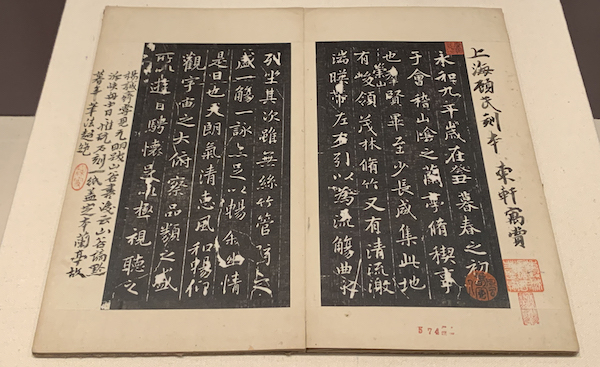 上海顧氏刻本 東軒寓賞
永和九年歲在癸丑暮春之初
于會稽山陰之蘭亭脩稧事
也羣賢畢至少長咸集此地
有崇山峻領茂林脩竹又有清流激
湍暎帶左右引以為流觴曲水
列坐其次雖無絲竹管弦之
盛一觴一詠亦足以暢叙幽情
是日也天朗氣清惠風和暢仰
觀宇宙之大俯察品類之盛
所以遊目騁懷足以極視聽之
山谷書後云山谷
又刻一紙蓋定本蘭亭故
暮年筆法超絶
574